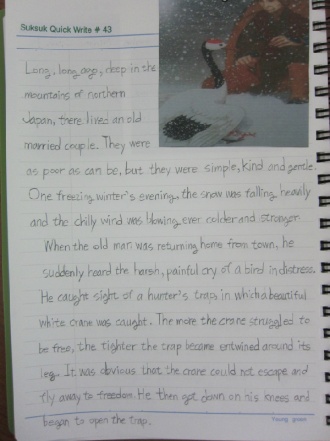 Suksuk Quick Write # 43
Long, long ago, deep in the
mountains of northern
Japan, there lived an old
married couple. They were
as poor as can be, but they were simple, kind and gentle.
One freezing winter's evening, the snow was falling heavily
and the chilly wind was blowing ever colder and stronger.
When the old man was returning home from town, he
suddenly heard the harsh, painful cry of a bird in distress.
He caught sight of a hunter's trap, in which a beautiful
white crane was caught. The more the crane struggled to
be free, the tighter the trap became entwined around its
leg. It was obvious that the crane could not escape and
fly away to freedom. He then got down on his knees and
began to open the trap.
Young green